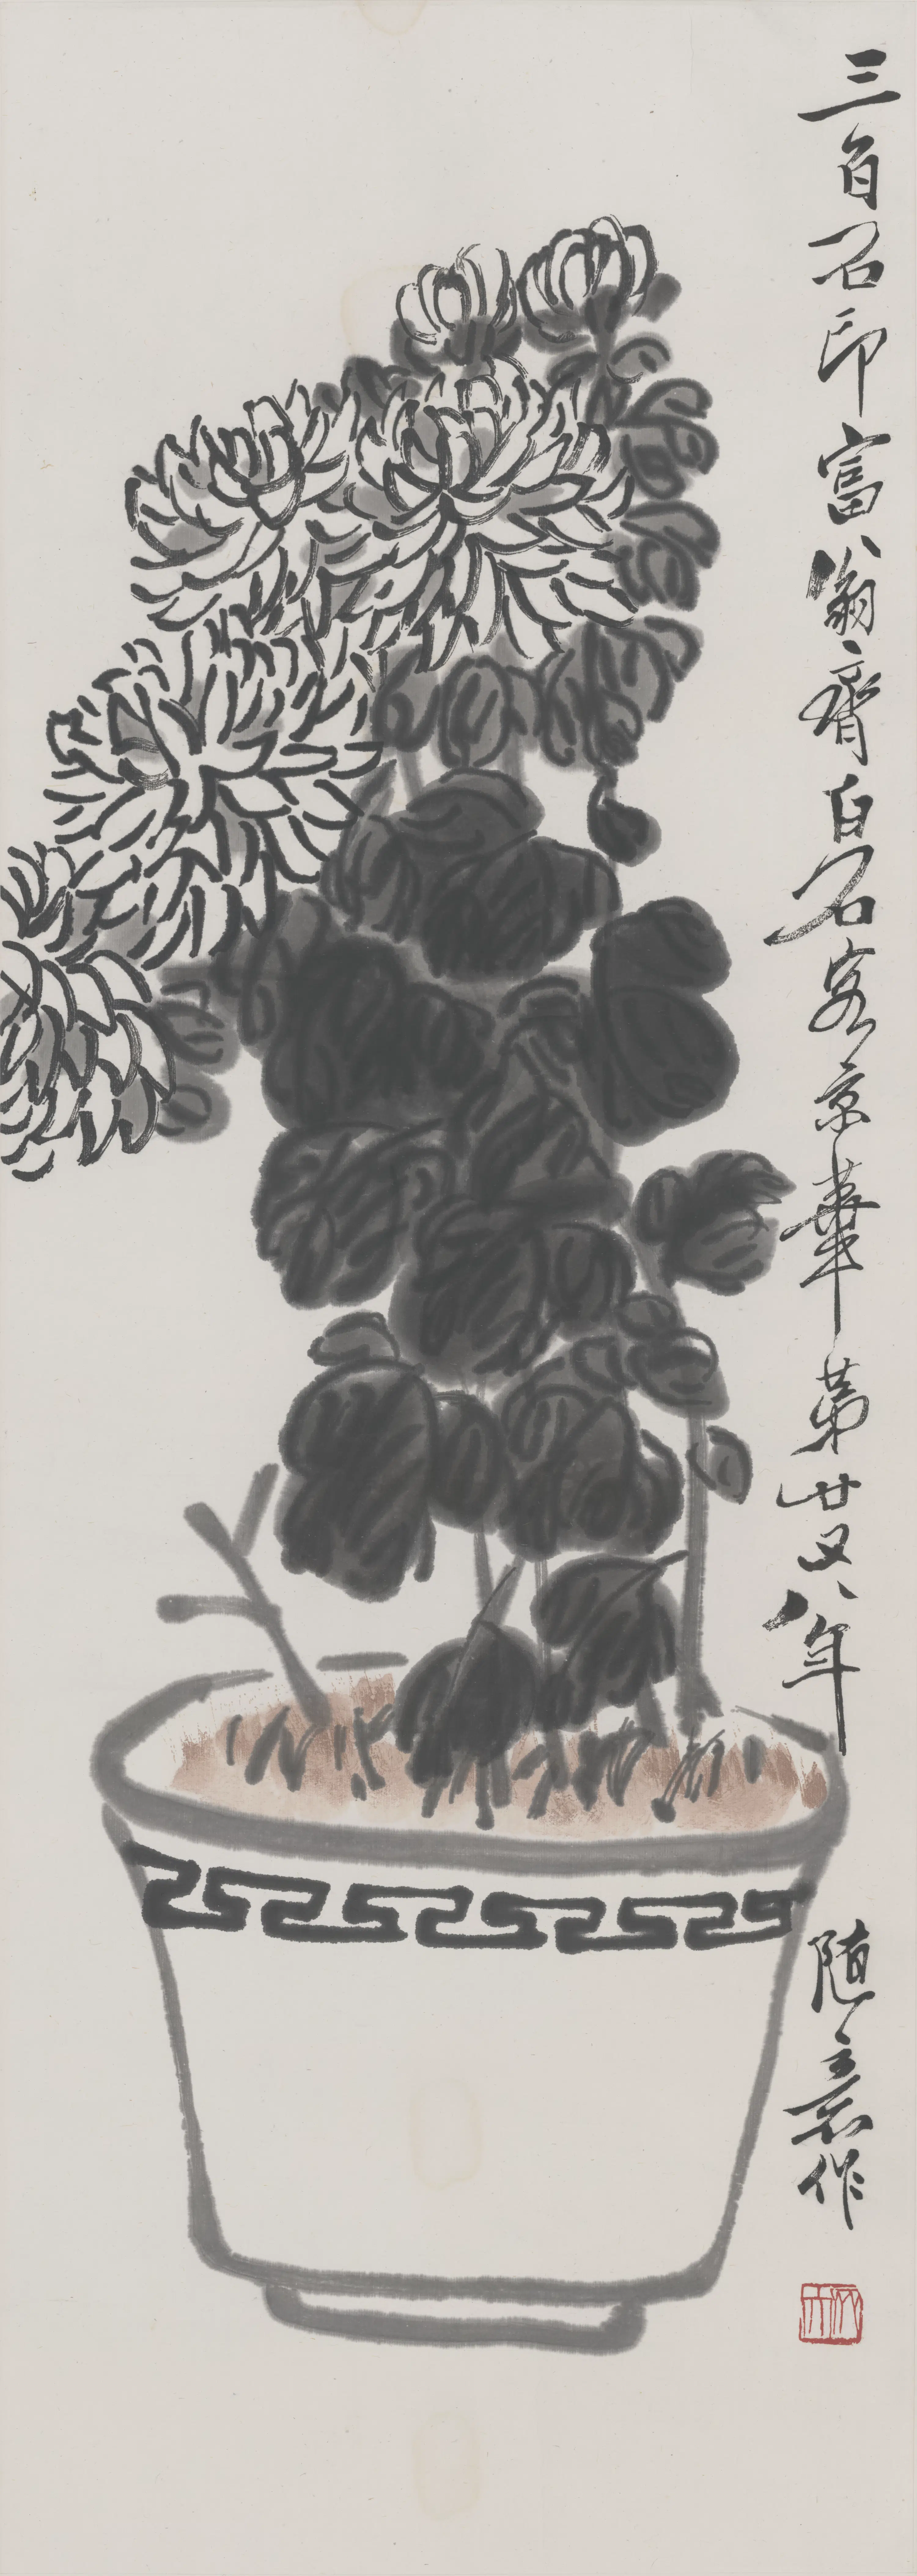 三百石印富翁齊白石客京華第廿又八年
隨意作